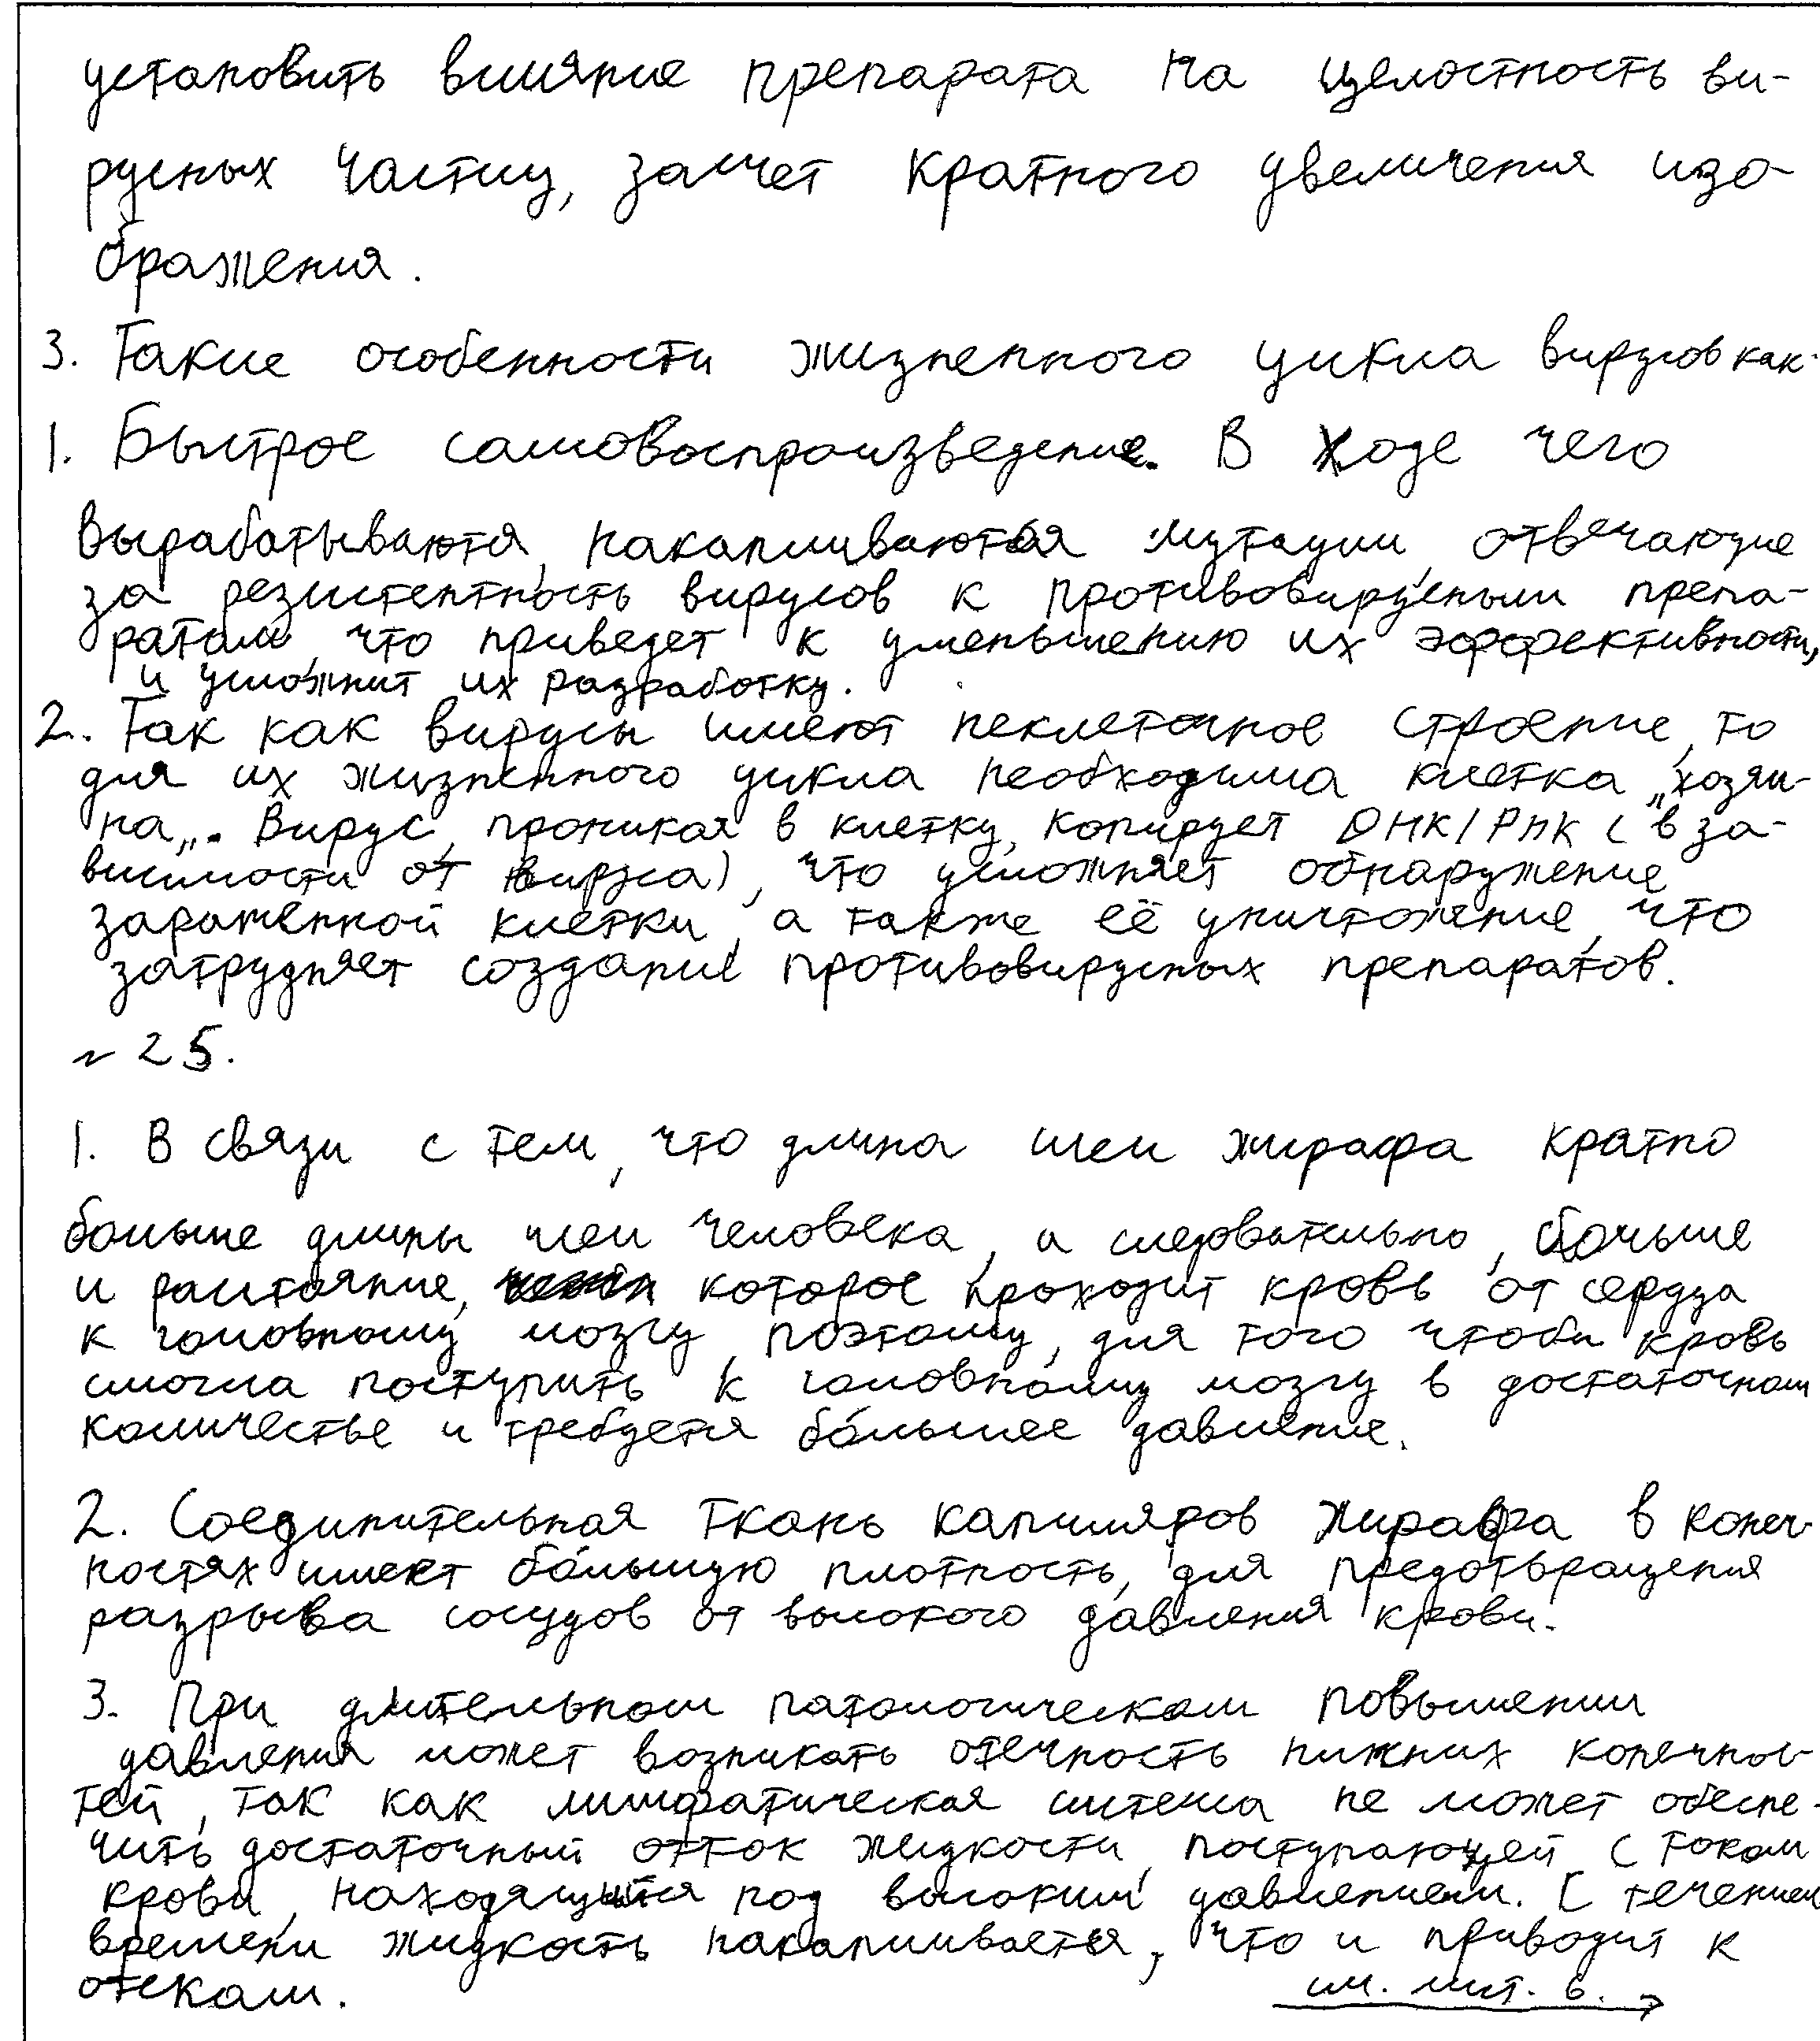 установить влияние препарата на целостность ви-
русных частиц, засчет кратного увеличения изо-
бражения.
3. Такие особенности жизненного цикла вирусов как:
1. Быстрое самовоспроизведение. В ходе чего
вырабатываются, накапливаются мутации, отвечающие
за резистентность вирусов к противовирусным препа-
ратам, что приведет к уменьшению их эффективности,
и усложнит их разработку.
2. Так как вирусы имеют неклеточное строение, то
для их жизненного цикла необходима клетка „хозяи-
на„. Вирус, проникая в клетку, копирует ДНК/РНК (в за-
висимости от вируса), что усложняет обнаружение
заражённой клетки, а также её уничтожение, что
затрудняет создание противовирусных препаратов.
~ 25.
1. В связи с тем, что длина шеи жирафа кратно
больше длины шеи человека, а следовательно, больше
и расстояние, которое проходит кровь от сердца
к головному мозгу, поэтому, для того чтобы кровь
смогла поступить к головному мозгу в достаточном
количестве и требуется бо́льшее давление.
2. Соединительная ткань капилляров жирафа в конеч-
ностях имеет бо́льшую плотность, для предотвращения
разрыва сосудов от высокого давления крови.
3. При длительном патологическом повышении
давления может возникать отечность нижних конечнос-
тей, так как лимфатическая система не может обеспе-
чить достаточный отток жидкости, поступающей с током
крови, находящийся под высоким давлением. С течением
времени жидкость накапливается, что и приводит к
отекам.
см. лист. 6. →